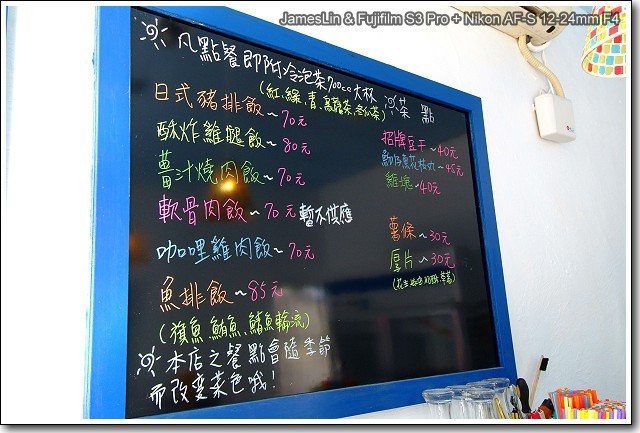 JamesLin & Fujifilm S3 Pro + Nikon AF-S 12-24mm F4
凡點餐即附冷泡茶700cc大杯
(紅、綠、青、烏龍茶、冬瓜茶)
日式豬排飯~70元
酥炸雞腿飯~80元
薑汁燒肉飯~70元
軟骨肉飯~70元 暫不供應
咖哩雞肉飯~70元
魚排飯~85元
(旗魚、鮪魚、鱔魚輪流)
本店之餐點會隨季節
而改变菜色哦!
茶點
招牌豆干~40元
花枝丸~45元
雞塊~40元
薯條~30元
厚片~30元